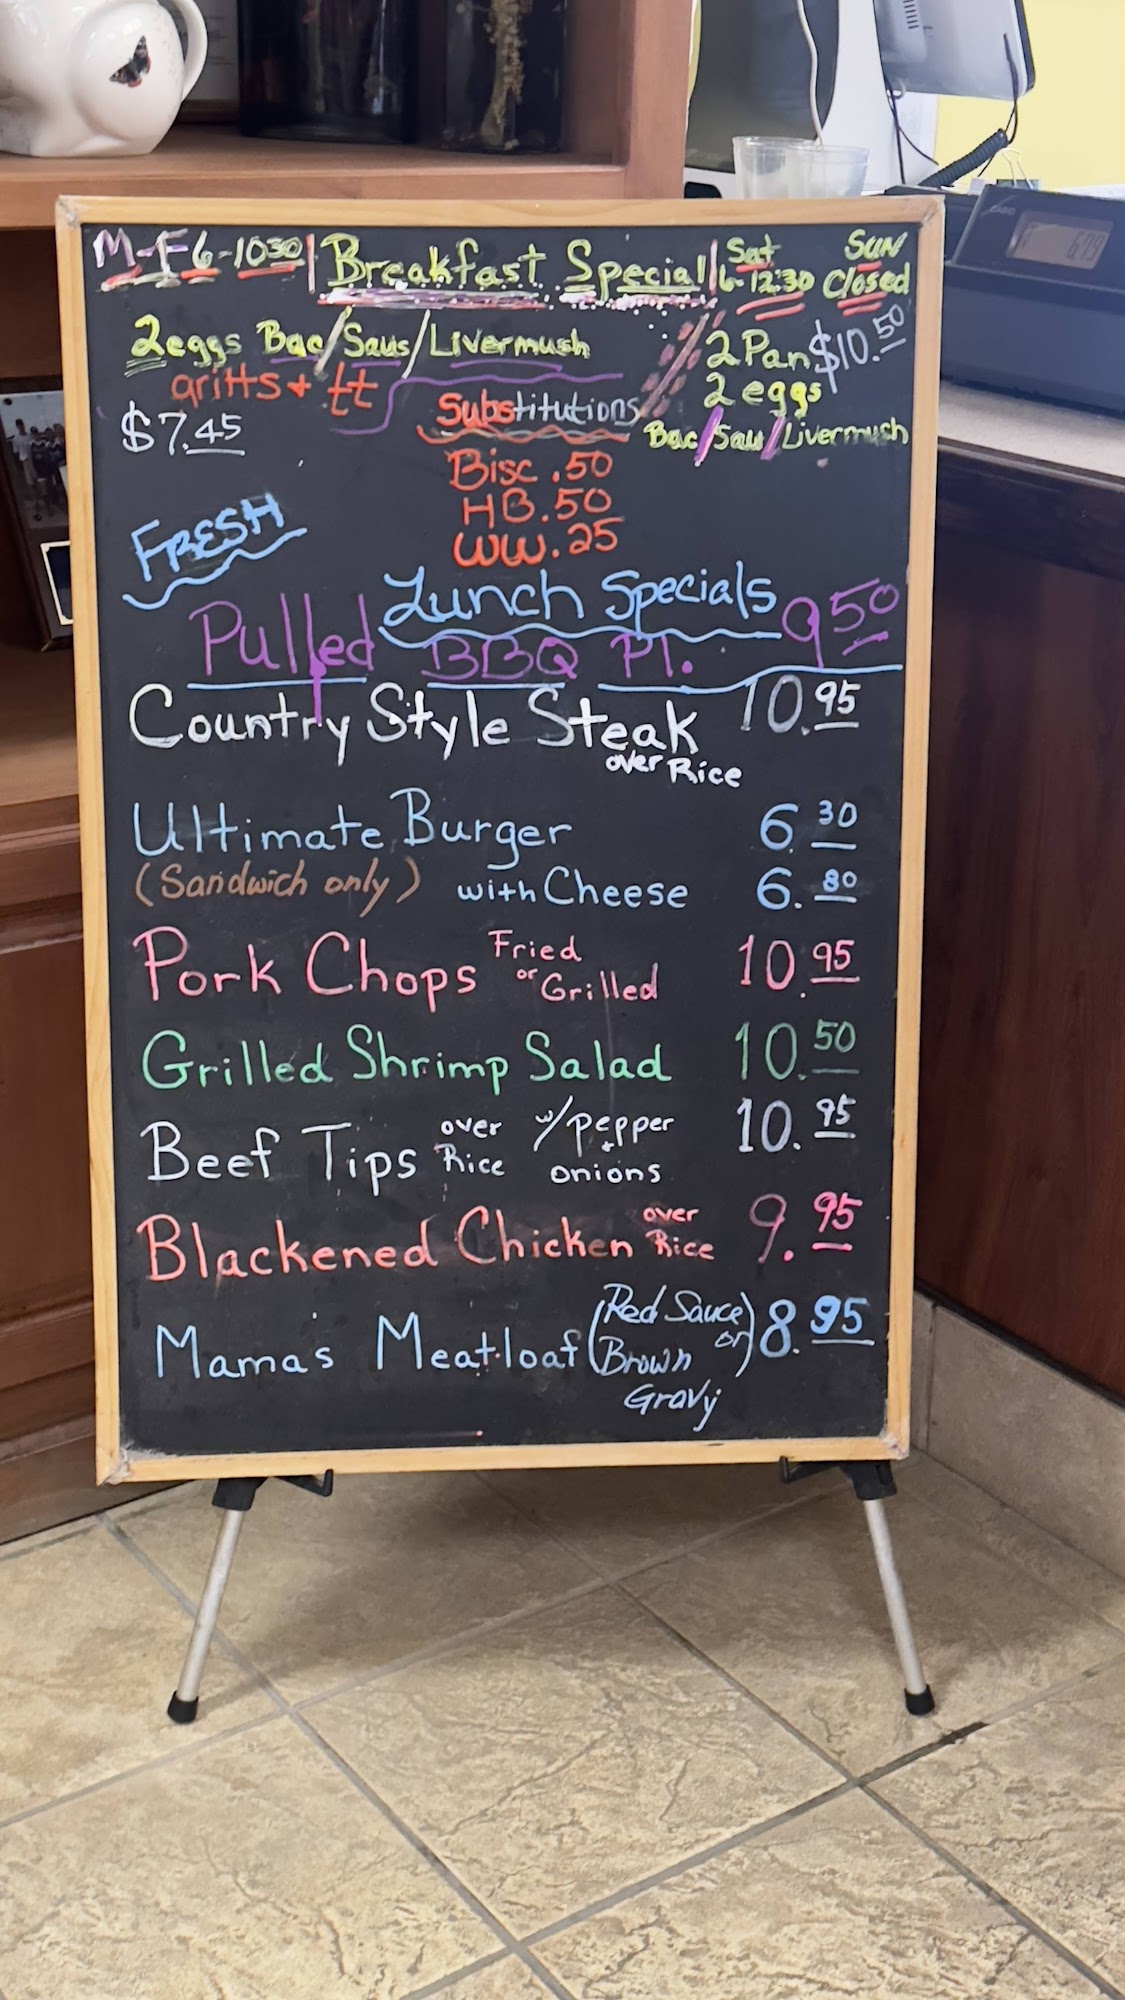 M-F 6-10 30 | Breakfast Special | Sat 6-12:30 SUN Closed
2eggs Bac/Saus/Livermush
gritts + tt
$7.45
2 Pan $10.50
2 eggs
Bac/Sau/Livermush
Substitutions
Bisc .50
HB .50
WW .25
FRESH
Lunch Specials
Pulled BBQ Pl. 9 50
Country Style Steak 10.95
over Rice
Ultimate Burger 6.30
(Sandwich only) with Cheese 6.80
Pork Chops Fried or Grilled 10.95
Grilled Shrimp Salad 10.50
Beef Tips over Rice w/ pepper + onions 10.95
Blackened Chicken over Rice 9.95
Mama's Meatloaf (Red Sauce or Brown Gravy) 8.95
CASIO